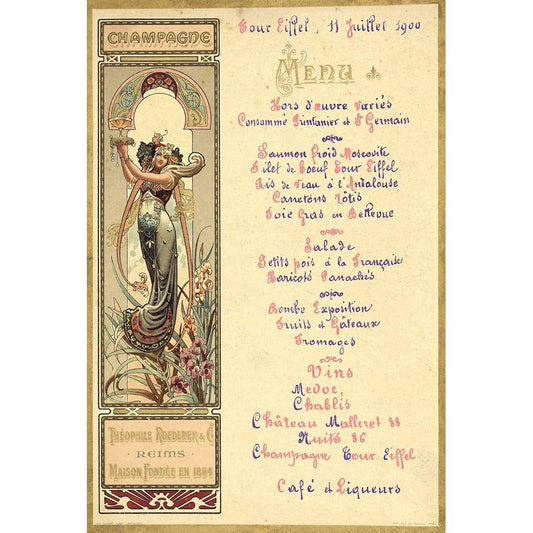 CHAMPAGNE
Tour Eiffel, 11 Juillet 1900
MENU
Hors d'œuvre Variés
Consommé Printanier et St Germain
Saumon Froid Moscovite
Filet de Boeuf Tour Eiffel
Ris de Veau à l'Andalouse
Canetons Rôtis
Foie Gras en Bellevue
Salade
Petits pois à la Française
Haricots Panachés
Bombe Exposition
Fruits et Gâteaux
Fromages
Vins
Medoc,
Chablis
Château Malleret 88
Nuits 86
Champagne Tour Eiffel
Café et Liqueurs
THÉOPHILE ROEDERER & Co
REIMS
MAISON FONDÉE EN 1864